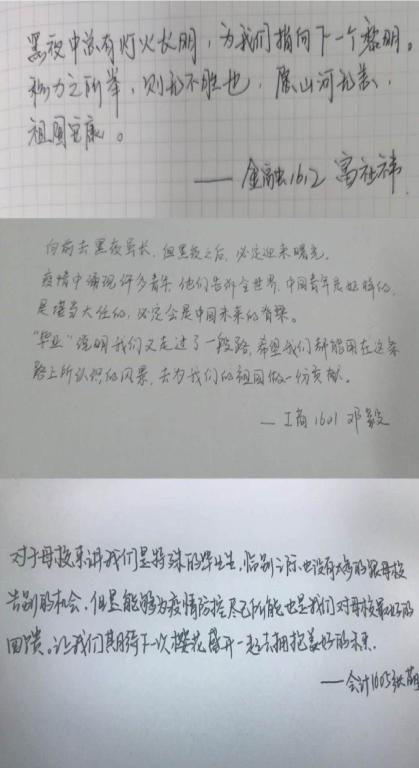 黑夜中总有灯火长明，为我们指向下一个黎明。
积力之所举，则无不胜也，愿山河无恙，
祖国安康。
——金融1612 高社祎
向前去黑夜虽长，但黑夜之后，必定迎来曙光。
疫情中涌现许多青年，他们告诉全世界，中国青年是好样的，
是堪当大任的，必定会是中国未来的脊梁。
“毕业”说明我们又走过了一段路，希望我们都能用在这条
路上所认识的风景，去为我们的祖国做一份贡献。
—工商1601 邓毅
对于母校来讲我们是特殊的毕业生，临别之际也没有太多的跟母校
告别的机会，但是能够为疫情防控尽己所能也是我们对母校最好的
回馈。让我们期待下一次樱花盛开一起去拥抱美好的未来。
——会计1605张萌